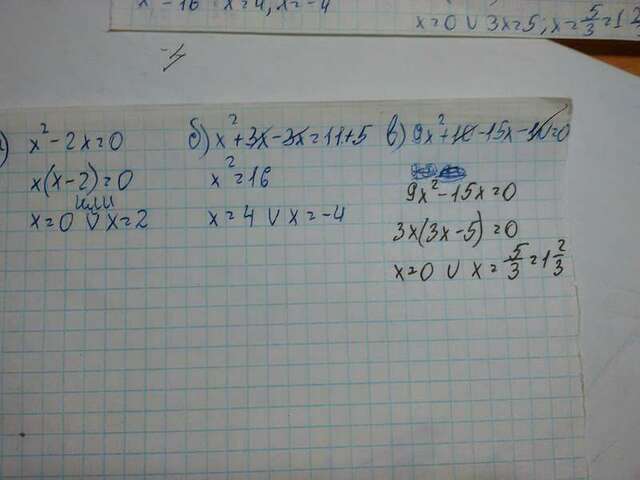 x² = 16 x=4, x=-4
x=0 ∨ 3x=5; x=5/3=1 2/3
-4
) x²-2x=0
x(x-2)=0
или
x=0 ∨ x=2
б) x²+3x-3x=11+5
x²=16
x=4 ∨ x=-4
в) 9x²+10-15x-10=0
9x²-15x=0
3x(3x-5)=0
x=0 ∨ x=5/3=1 2/3